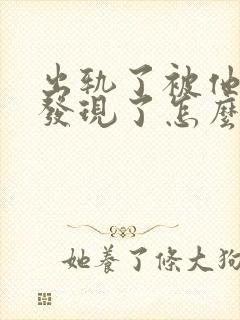 出轨了被他
發現了怎麼
她養了條大狗